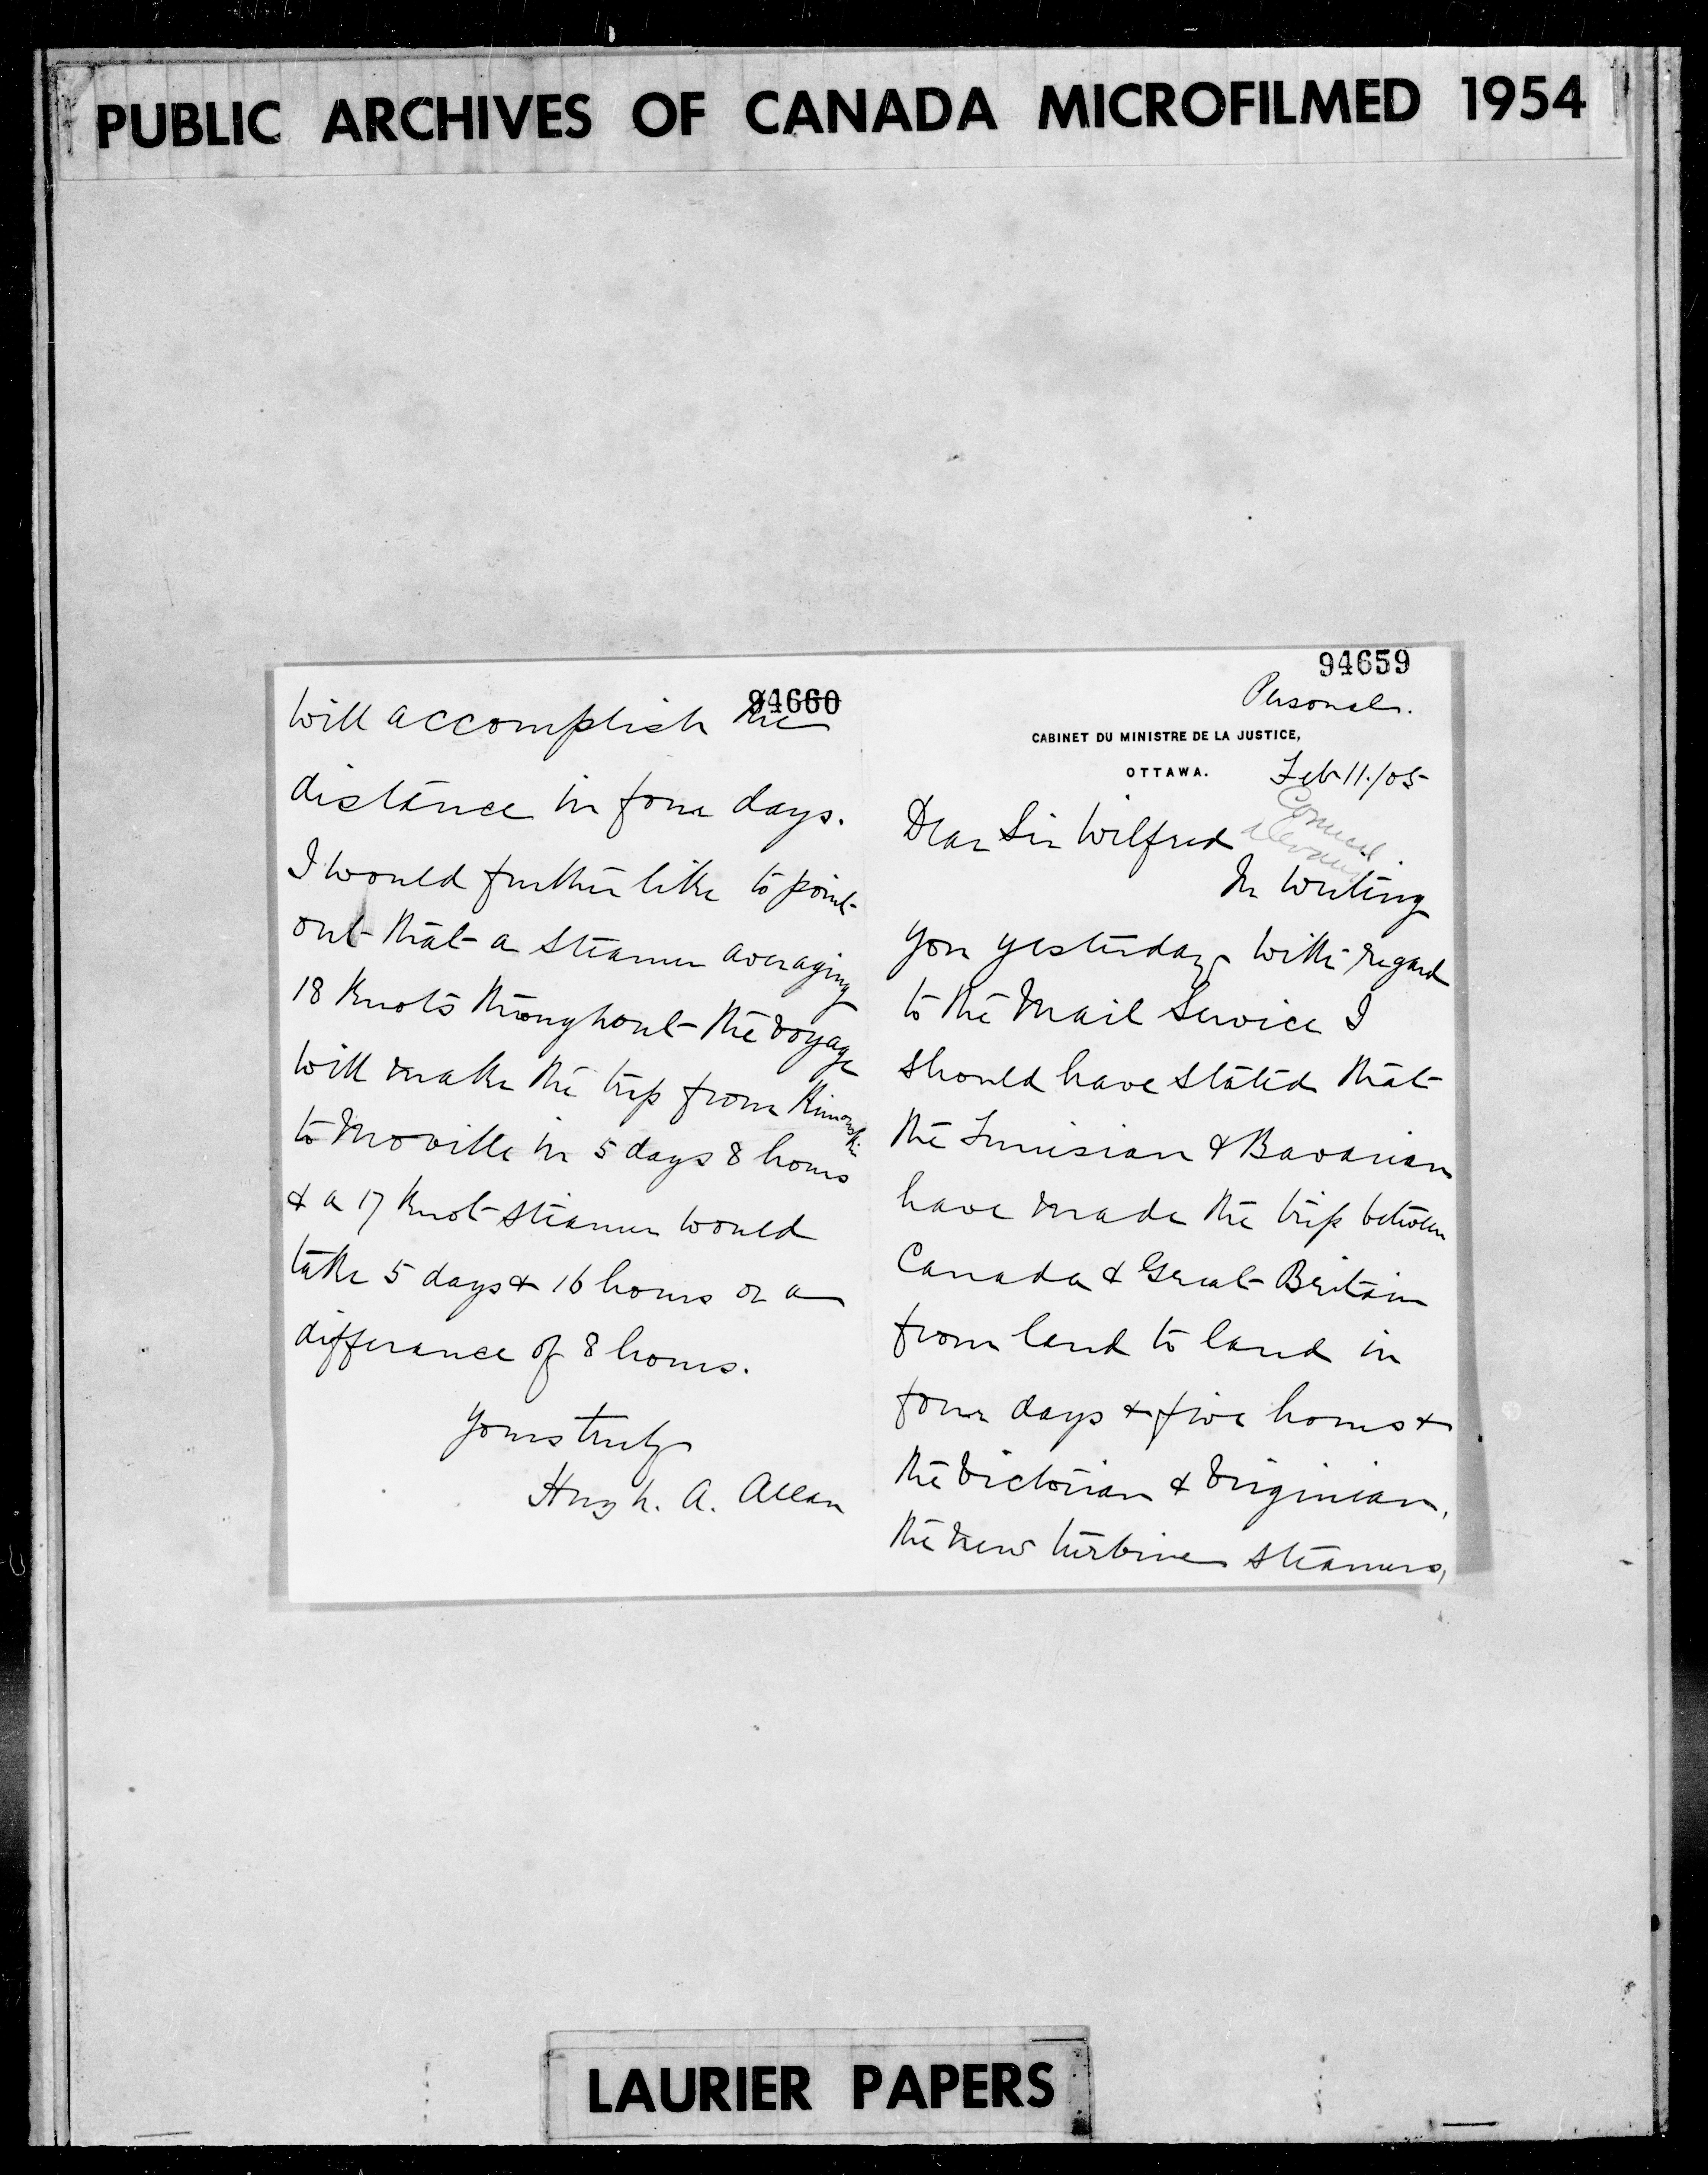 PUBLIC ARCHIVES OF CANADA MICROFILMED 1954
94659
Personal.
CABINET DU MINISTRE DE LA JUSTICE,
OTTAWA.
Feb 11/05
Dear Sir Wilfred
In writing
you yesterday with regard
to the Mail Service I
should have stated that
the Tunisian & Bavarian
have made the trip between
Canada & Great Britain
from land to land in
four days & five hours &
the Victorian & Virginian,
the new turbine steamers,
94660
will accomplish the
distance in four days.
I would further like to point
out that a steamer averaging
18 Knots throughout the voyage
will make the trip from Rimouski
to Moville in 5 days 8 hours
& a 17 Knot steamer would
take 5 days & 16 hours or a
differance of 8 hours.
Yours truly
Hugh. A. Allan
LAURIER PAPERS